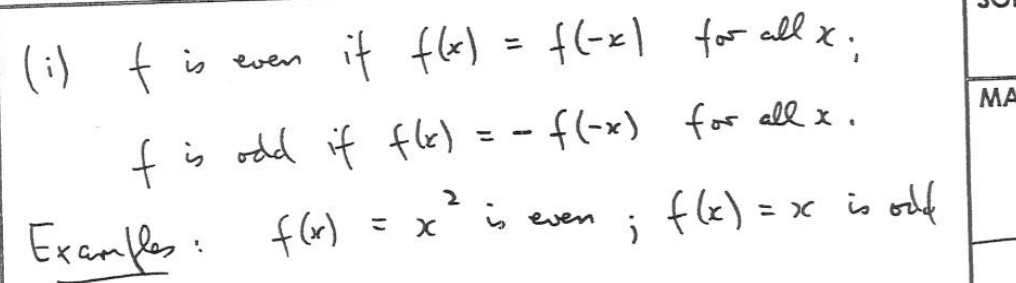 (i) f is even if f(x) = f(-x) for all x ;
f is odd if f(x) = - f(-x) for all x .
Examples : f(x) = x² is even ; f(x) = x is odd
MA